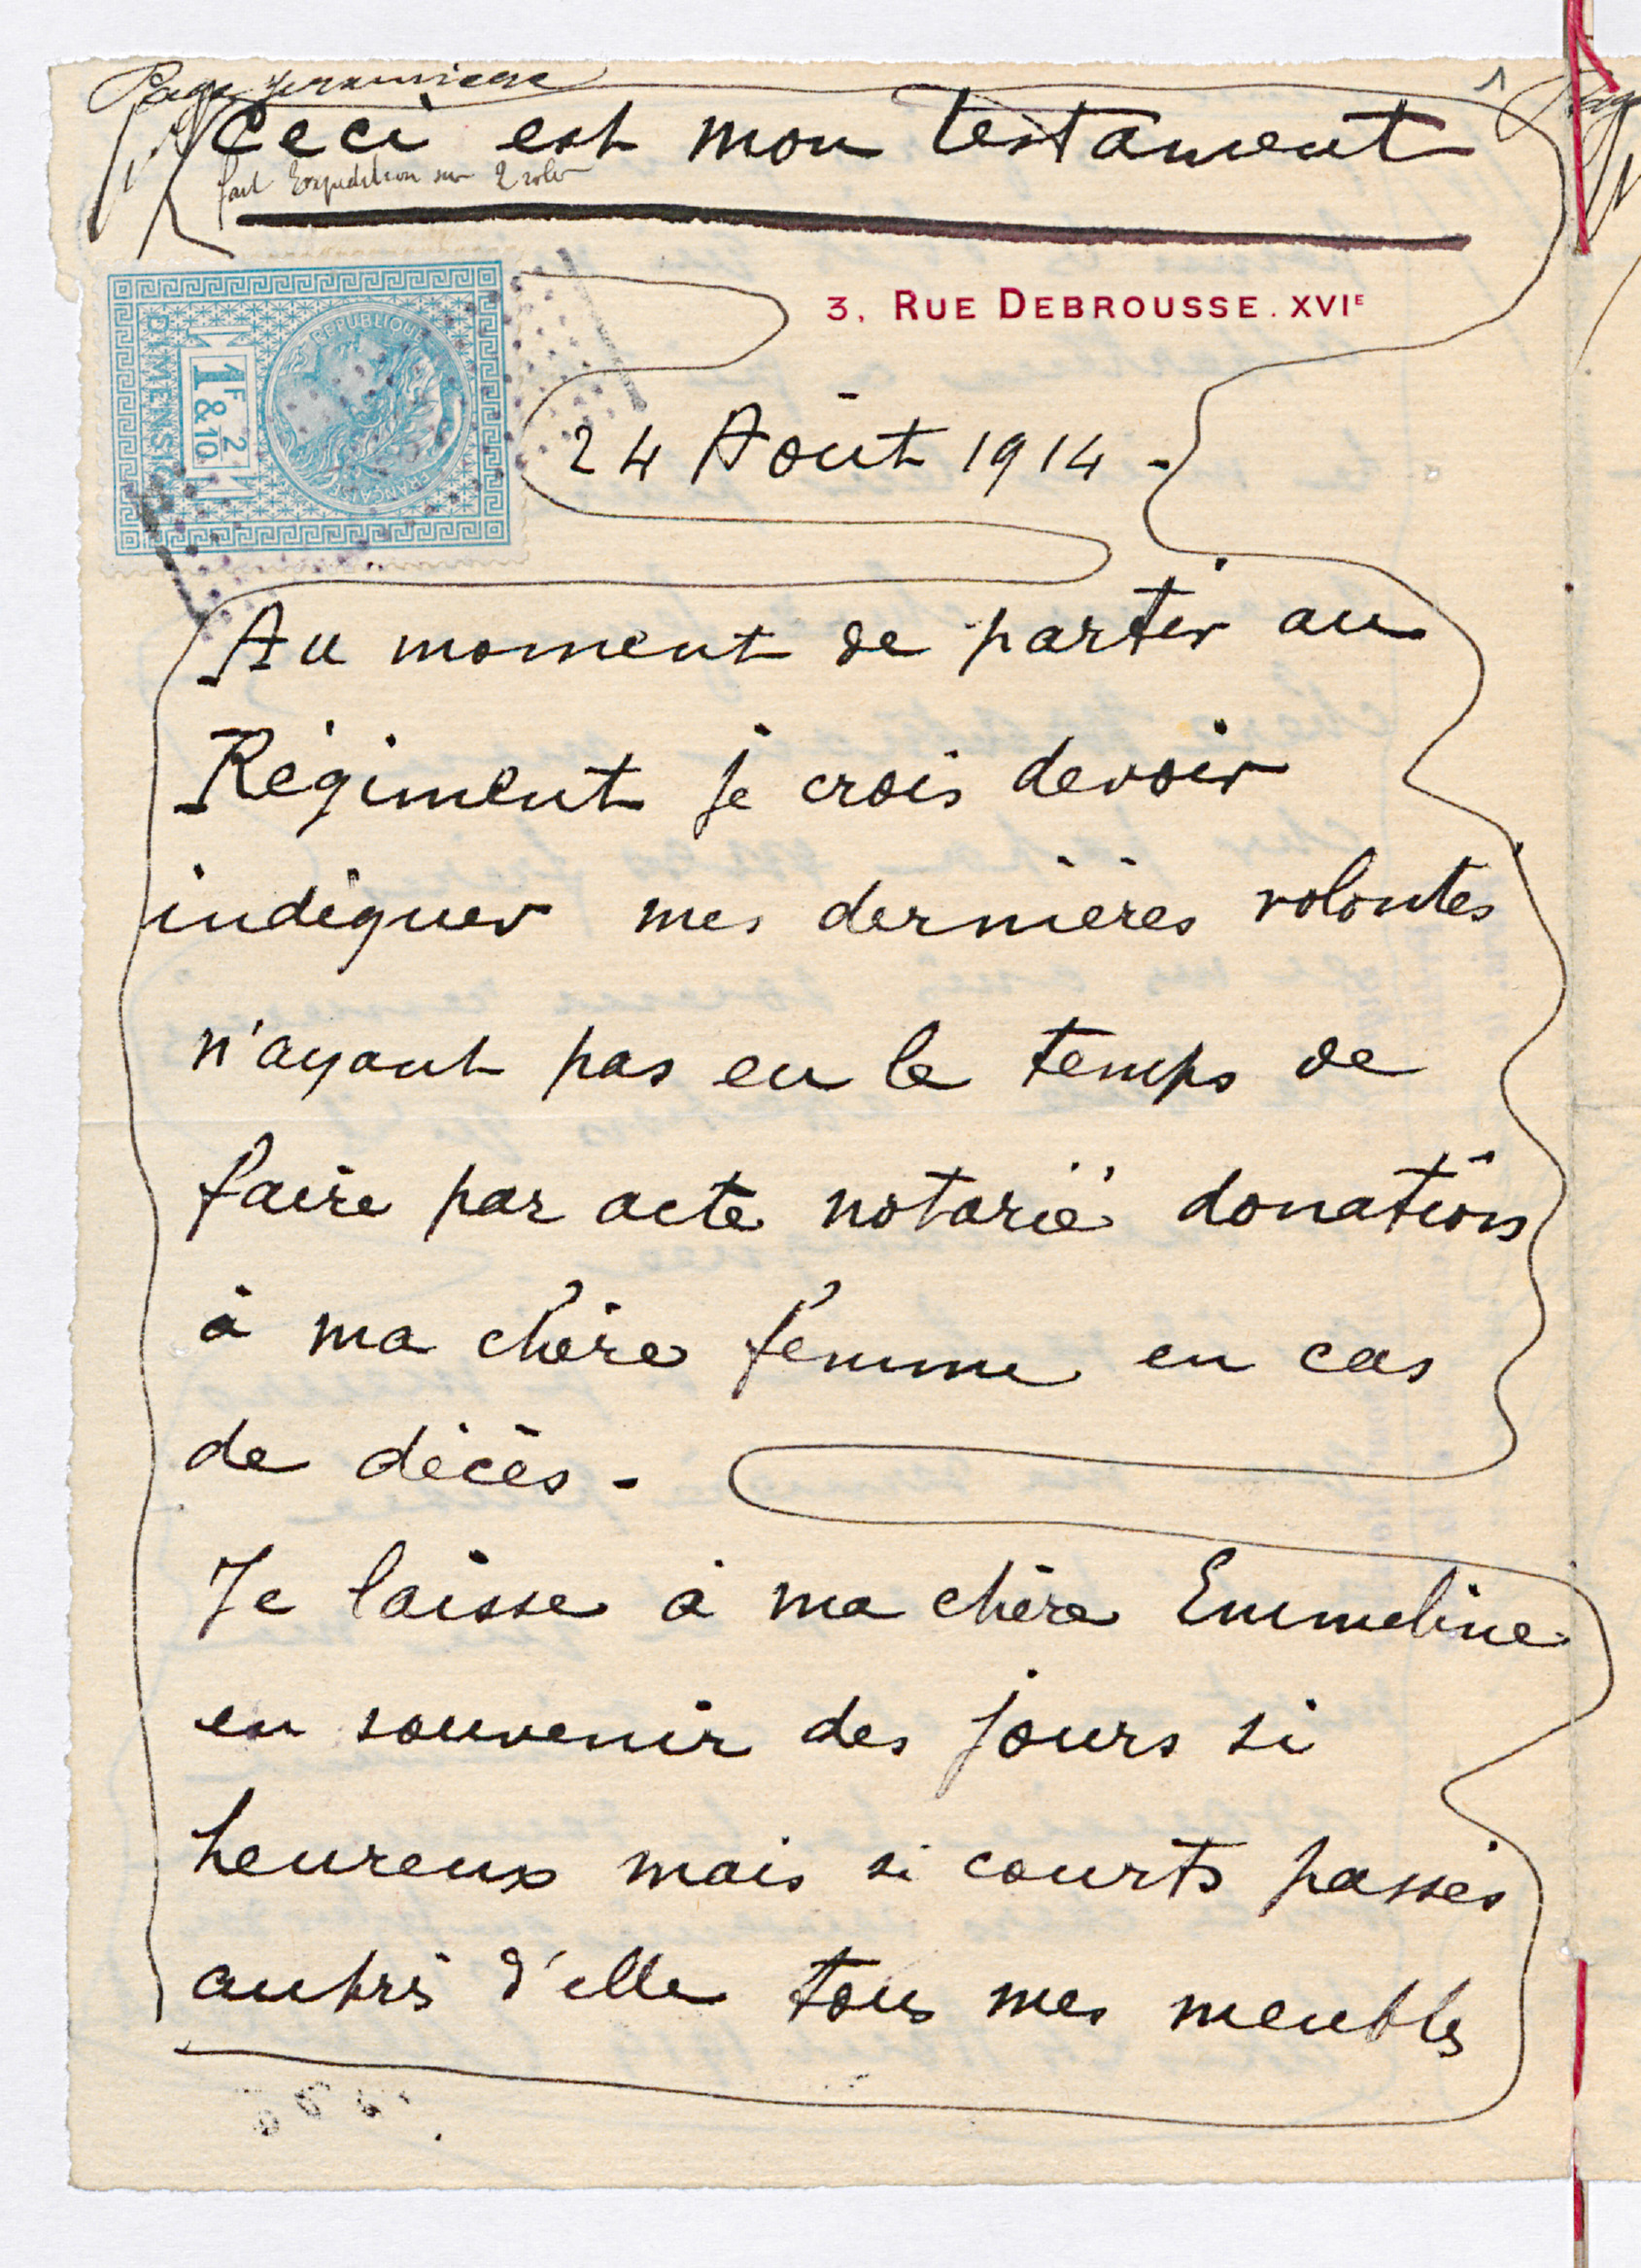 Page première
1
Ceci est mon testament
fait Expédition sur 2 roles
3, RUE DEBROUSSE. XVIE
RÉPUBLIQUE FRANÇAISE
1F & 2/10
DIMENSION
24 Août 1914 -
Au moment de partir au
Régiment je crois devoir
indiquer mes dernières volontés
n'ayant pas eu le temps de
faire par acte notarié donations
à ma chère femme en cas
de décès -
Je laisse à ma chère Emmeline
en souvenir des jours si
heureux mais si courts passés
auprès d'elle tous mes meubles